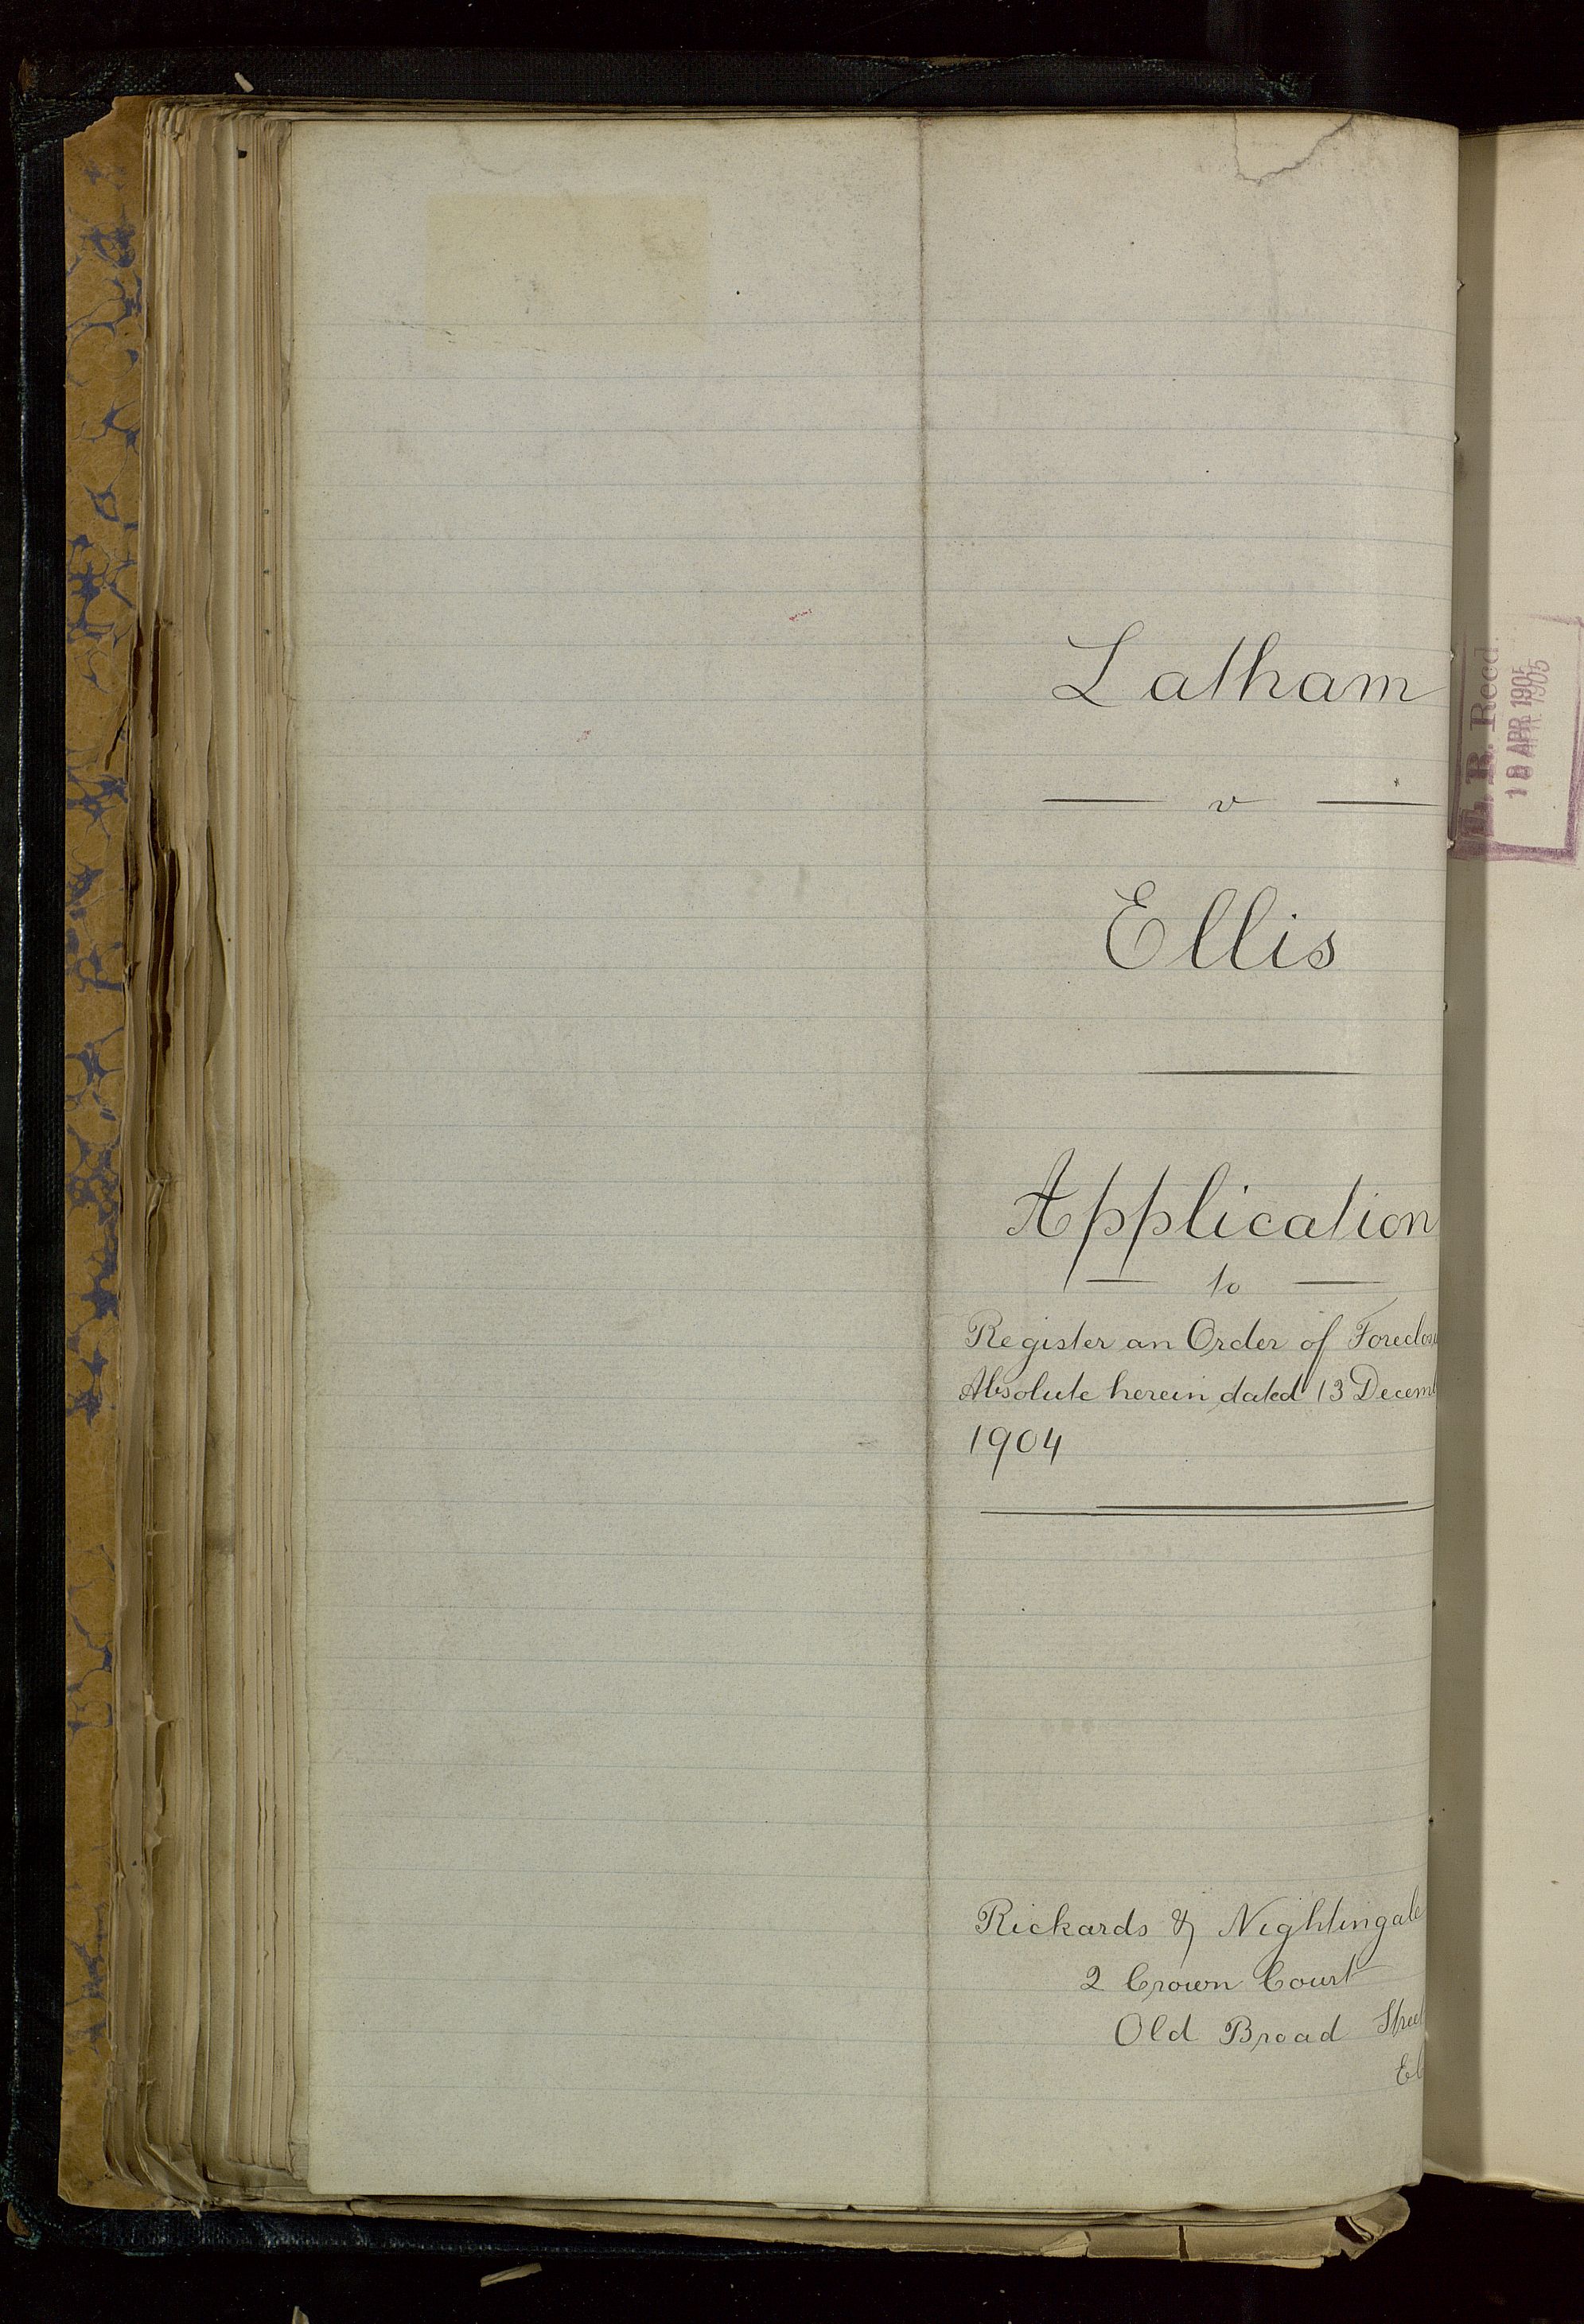 Latham
v
Ellis
Application
to
Register an Order of Foreclosu
Absolute herein dated 13 Decemb
1904
Rickards & Nightingale
2 Crown Court
Old Broad Street
EC
L. R. Recd.
18 APR 1905